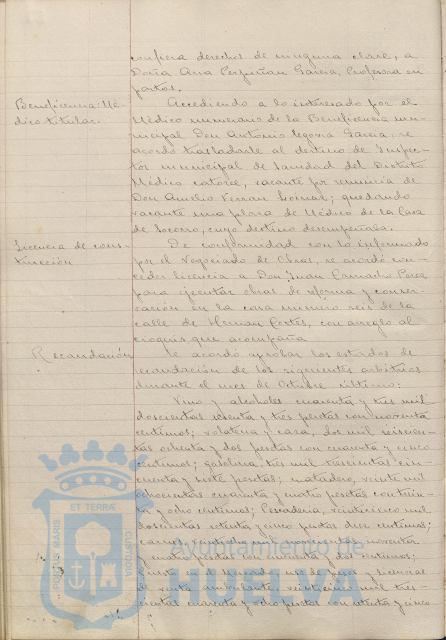 confiera derechos de ninguna clase, a
Doña Ana Perguñan Garcia, Profesora en
partos.
Beneficencia: Mé-
dico titular.
Accediendo a lo interesado por el
Médico numerario de la Beneficencia mu-
nicipal Don Antonio Segovia Garcia, se
acordó trasladarle al destino de Inspec-
tor municipal de Sanidad del Distrito
Médico catorce, vacante por renuncia de
Don Aurelio Ferran; quedando
vacante una plaza de Médico de la Casa
de Socorro, cuyo destino desempeñaba.
Licencia de cons-
trucción
De conformidad con lo informado
por el Negociado de Obras, se acordó con-
ceder licencia a Don Juan Camacho
para ejecutar obras de reforma y conser-
vación en la casa número seis de la
calle de Hernan Cortés, con arreglo al
croquis que acompaña
Recaudación
Se acordó aprobar los estados de
recaudación de los siguientes arbitrios
durante el mes de Octubre último:
Vino y alcoholes cuarenta y tres mil
doscientas sesenta y tres pesetas con noventa
centimos; volateria y caza, dos mil seiscien-
tas ochenta y dos pesetas con cuarenta y cinco
centimos; gasolina, tres mil trescientas cin-
cuenta y siete pesetas; matadero, veinte mil
ochocientas cuarenta y cuatro pesetas con trein-
ta y ocho centimos; Pescaderia, veinticinco mil
doscientas setenta y cinco pesetas diez centimos;
carnes, veintiocho mil novecientas noventa
y cuatro pesetas cincuenta y dos centimos;
puestos en mercado, uso de peso y licencias
de venta ambulante, veinticinco mil tres-
cientas cuarenta y ocho pesetas con ochenta y cinco
ET TERRÆ
CUSTODIA
PORTUS MARIS
Ayuntamiento de
HUELVA